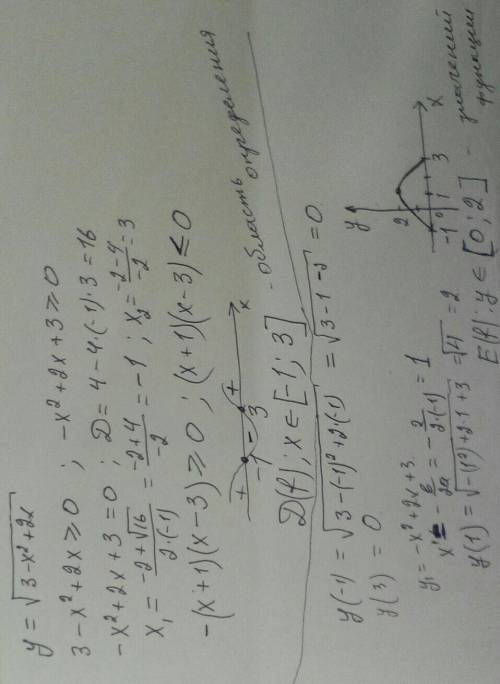 y = √(3-x²+2x)
3-x²+2x ≥ 0 ; -x²+2x+3 ≥ 0
-x²+2x+3 = 0 ; D = 4-4·(-1)·3 = 16
x₁ = (-2+√16)/(2·(-1)) = (-2+4)/(-2) = -1 ; x₂ = (-2-4)/(-2) = 3
-(x+1)(x-3) ≥ 0 ; (x+1)(x-3) ≤ 0
+ - +
-1 3 x
D(f); x ∈ [-1; 3] - область определения
y(-1) = √(3-(-1)²+2·(-1)) = √(3-1-2) = 0
y(3) = 0
y₁ = -x²+2x+3
x = -b/2a = -2/(2·(-1)) = 1
y(1) = √(-(1²)+2·1+3) = √4 = 2
y
2
-1 0 1 3 x
E(f); y ∈ [0; 2] - значений функции